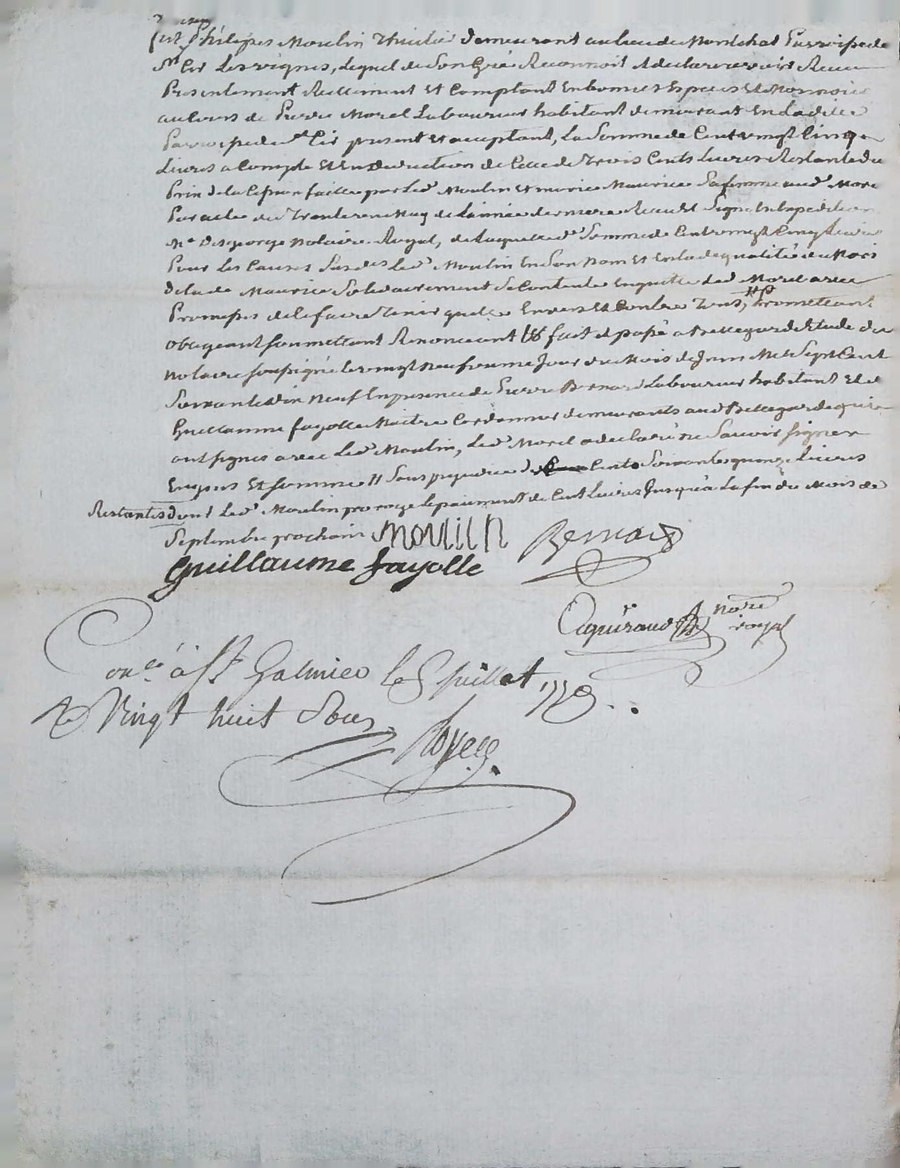 fut Philippes Moulin Thuilié demeurant au lieu du Montchat Parroisse de
St Cir Les vignes, Lequel de Son Gré Reconnoit & declare avoir Receu
Presentement Reellement Et Comptant En bonnes Especes Et Monnoies
au Cours de Pierre Morel Laboureur habitant demeurant En Ladite
Parroisse de St Cir present Et acceptant, La Somme de Cent vingt Cinq
Livres a Compte Et En Deduction de Celle de Trois Cents Livres Restante du
Prix de la Cession faitte par Led. Moulin Et Maurice Sa femme aud. Morel
Par acte du Trente may de L'année derniere Receu Et Signé En Expedition
Me Desgeorge Notaire Royal, de Laquelle de Somme de Cent vingt Cinq Livres
Pour Les Causes Susdes Led. Moulin En Son Nom Et En lade qualité de Mari
de lade Maurice Solidairement Se Contente En quitte Led. Morel avec
Promesses de Le faire Tenir quitte Envers Et Contre Tous, Promettant
obligeant Soumettant Renonceant &&. fait et passé a Bellegarde Etude du
notaire soussigné le vingt neuf Jour du Mois de Juin Mil Sept Cent
Soixante dix Neuf En presence de Pierre Bernard Laboureur habitant Et de
Guillaume fayolle Maitre Cordonnier demeurants aud. Bellegarde qui
ont signés avec Led. Moulin, Led. Morel a declaré ne Savoir signer
Enquis Et Sommé // Sans prejudice de Cents Soixante quinze Livres
Restantes dont Led. Moulin proroge le paiement de Cent Livres Jusqu'à La fin du Mois de
Septembre prochain MOULIN Bernard
Guillaume fayolle
notre royal
Conlé à St Galmier le 5 Juillet 1779
Rs Vingt huit Sous